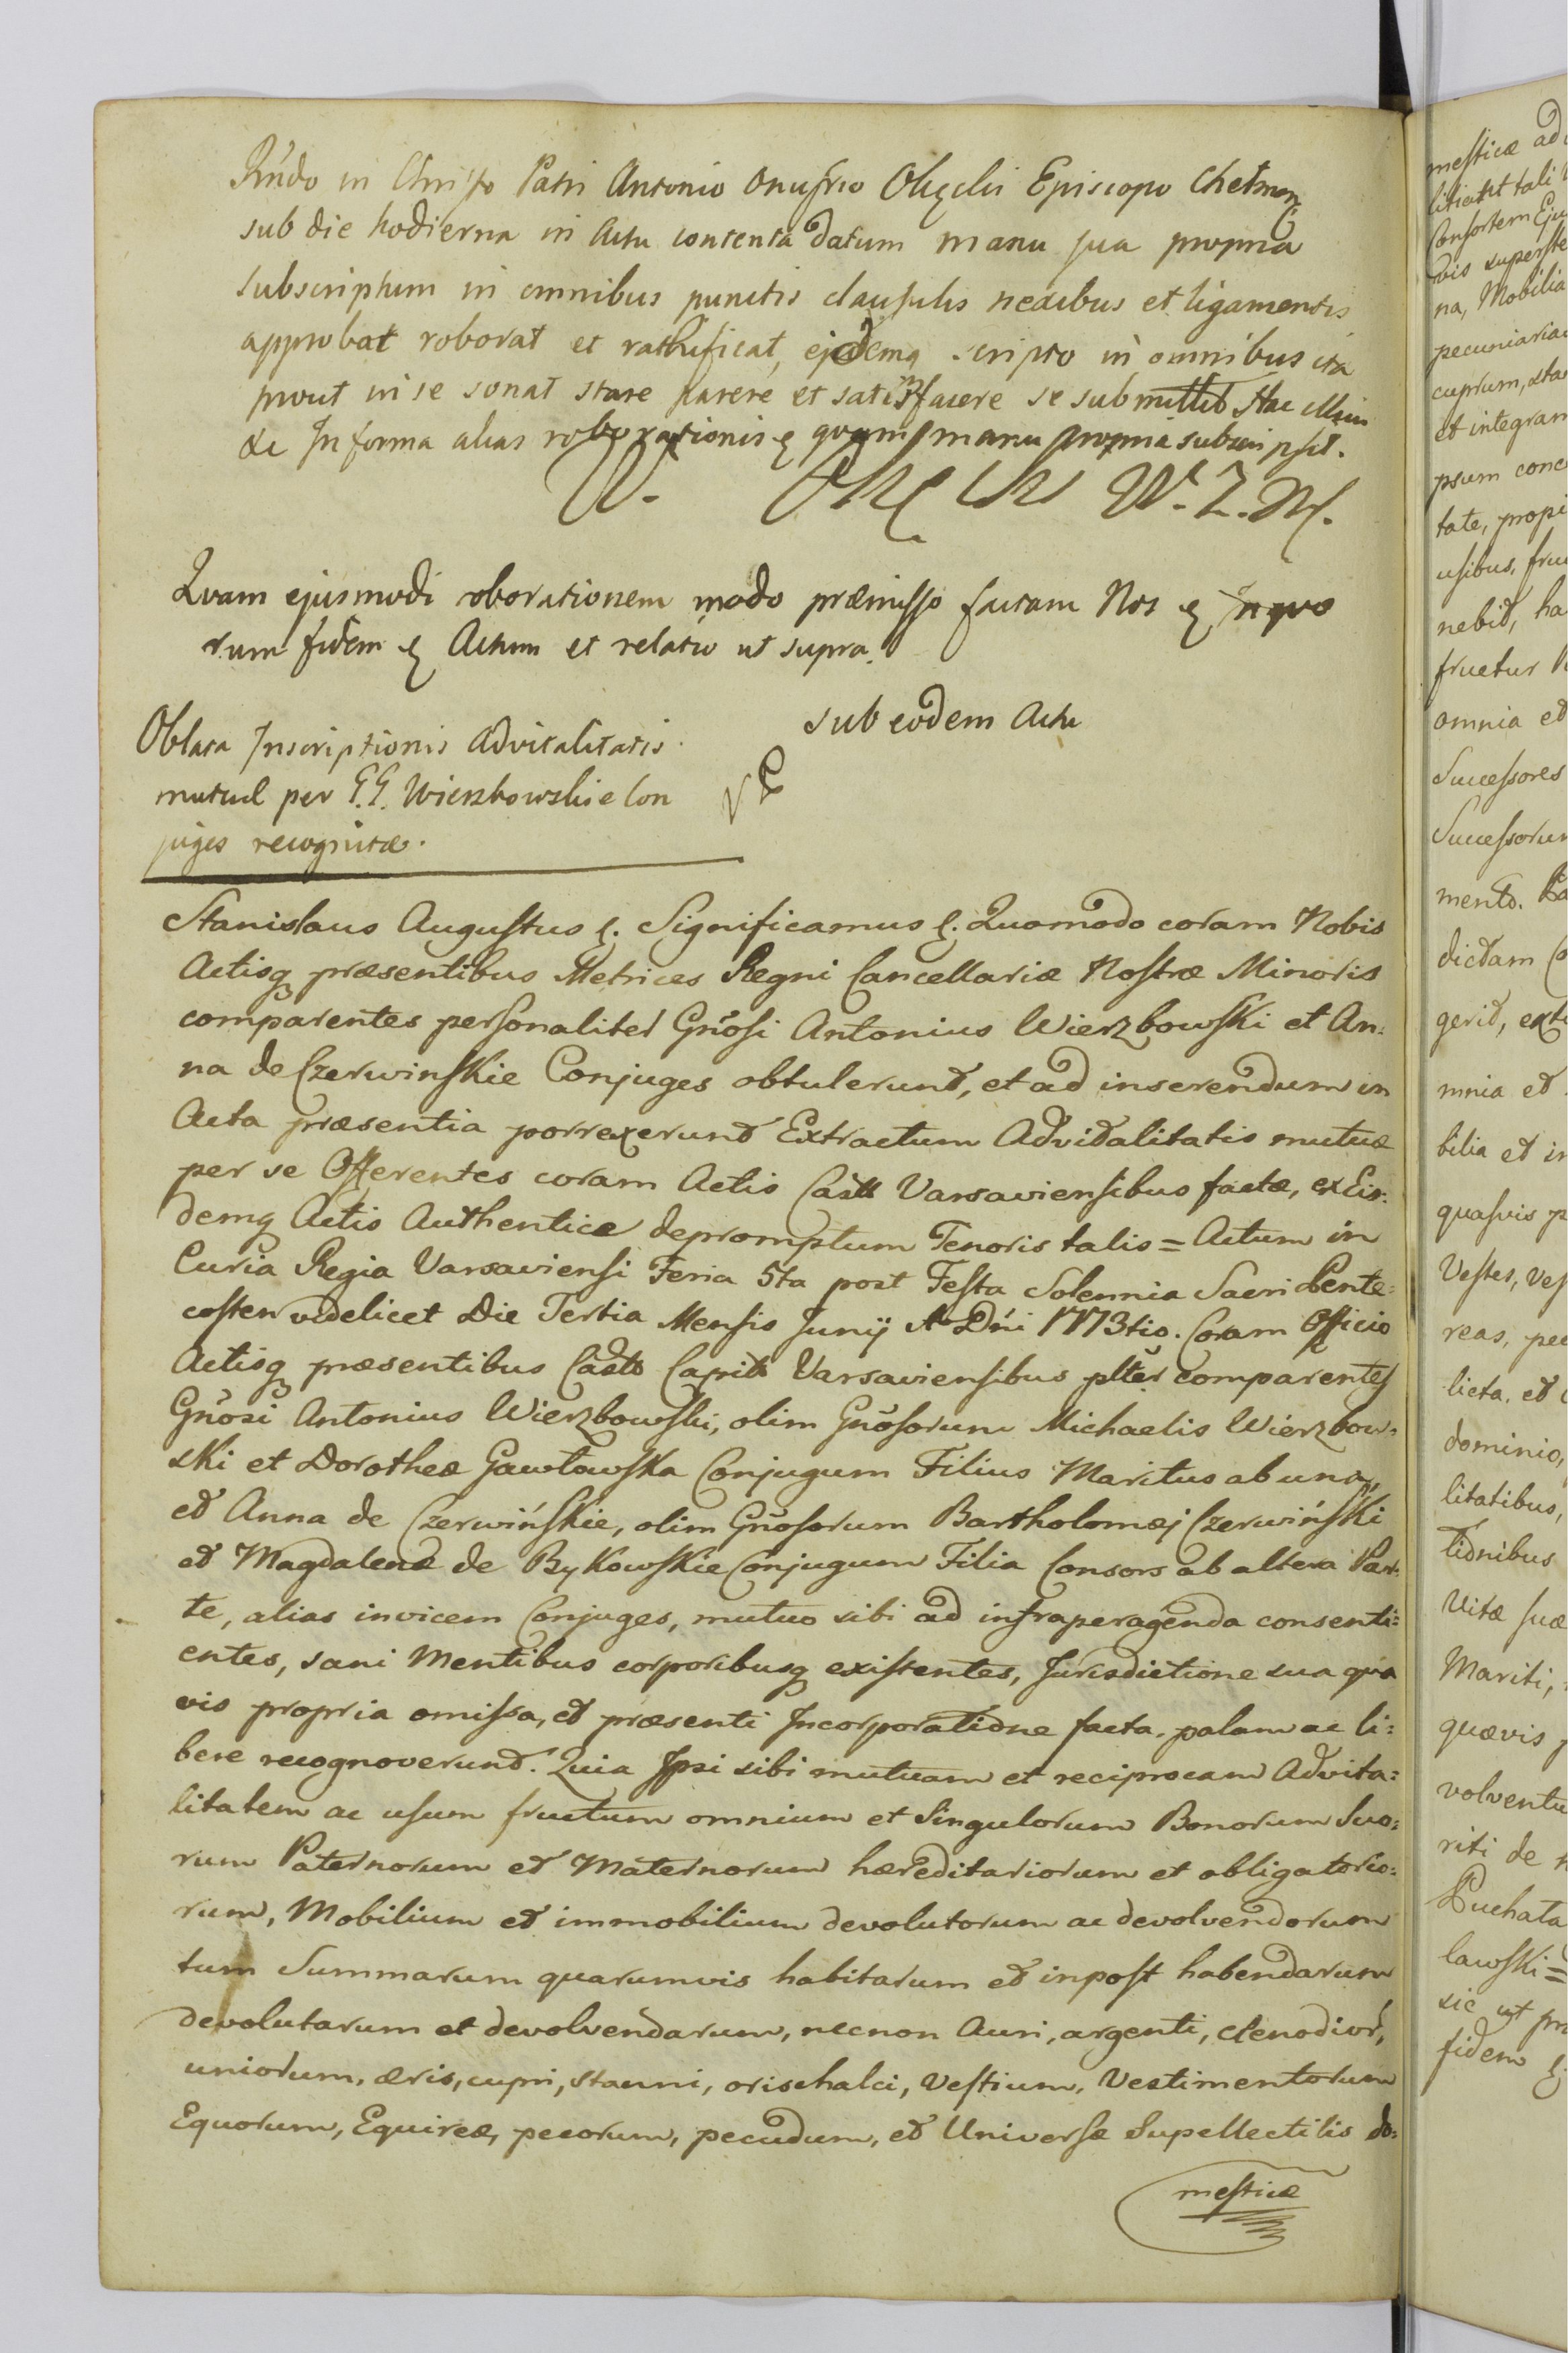 Rńdo in Christo Patri Antonio Onufrio Okęcki Episcopo Chełmen
sub die hodierna in Actu contenta datum manu sua propria
subscriptum in omnibus punctis clausulis nexibus et ligamentis
approbat roborat et rathificat, ejdemq scripto in omnibus ita
prout in se sonat stare parere et satisfacere se submittit Hac
In forma alias roborationis ę quam manu propria subscripsit.
W.
Quam ejusmodi roborationem modo præmisso factam Nos ę Inquo
rum fidem ę Actum et relatio ut supra.
sub eodem Actu
Oblata Inscriptionis Advitalitatis
mutuæ per G.G. Wierzbowskie Con
juges recognitæ.
Stanislaus Augustus ę. Significamus ę. Quomodo coram Nobis
Actisq præsentibus Metrices Regni Cancellariæ Nostræ Minoris
comparentes personaliter Gnősi Antonius Wierzbowski et An:
na de Czerwinskie Conjuges obtulerunt, et ad inserendum in
Acta præsentia porrexerunt Extractum Advitalitatis mutuæ
per se Offerentes coram Actis Castr Varsaviensibus factæ, ex Eis:
demq Actis Authentice depromptum Tenoris talis = Actum in
Curia Regia Varsaviensi Feria 5ta post Festa Solennia Sacri Pente:
costen videlicet Die Tertia Mensis Junÿ A Dńi 1773tio. Coram Officio
Actisq præsentibus Castr Capit Varsaviensibus plter comparentes
Gnősi Antonius Wierzbowski, olim Gnősorum Michaelis Wierzbow:
ski et Dorotheæ Gawłowska Conjugum Filius Maritus ab una,
et Anna de Czerwińskie, olim Gnősorum Bartholomæj Czerwiński
et Magdalenæ de Bykowskie Conjugum Filia Consors ab altera Par:
te, alias invicem Conjuges, mutuo sibi ad infraperagenda consenti:
entes, sani Mentibus corporibusq existentes, Jurisdictione sua qua
vis propria omissa, et præsenti Incorporatione facta, palam ac li:
bere recognoverunt. Quia Ipsi sibi mutuam et reciprocam Advita:
litatem ac usum fructum omnium et Singulorum Bonorum Suo:
rum Paternorum et Maternorum hæreditariorum et obligatorio:
rum, Mobilium et immobilium devolutorum ac devolvendorum
tum Summarum quarumvis habitarum et inpost habendarum
devolutarum et devolvendarum, necnon Auri, argenti, clenodior,
uniorum, æris, cupri, stanni, orischalci, Vestium, Vestimentorum
Equorum, Equireæ, pecorum, pecudum, et Universæ Supellectilis do:
mesticæ
mesticæ ad
Consortem Eju
vis superste
na, Mobilia
pecuniaria
cuprum, sta
et integram
psum conc
tate, propr
usibus, fru
nebit, ha
fruetur
omnia et
Successores
Successorum
mento.
dictam Co
gerit, ext
mnia et
bilia et in
quasvis p
Vestes, Ves
reas, pec
licta, et
dominio,
litatibus,
tionibus
Vitæ suæ
Mariti,
quævis p
volventu
riti de
Puchata
lawski =
sic ut præ
fidem ę